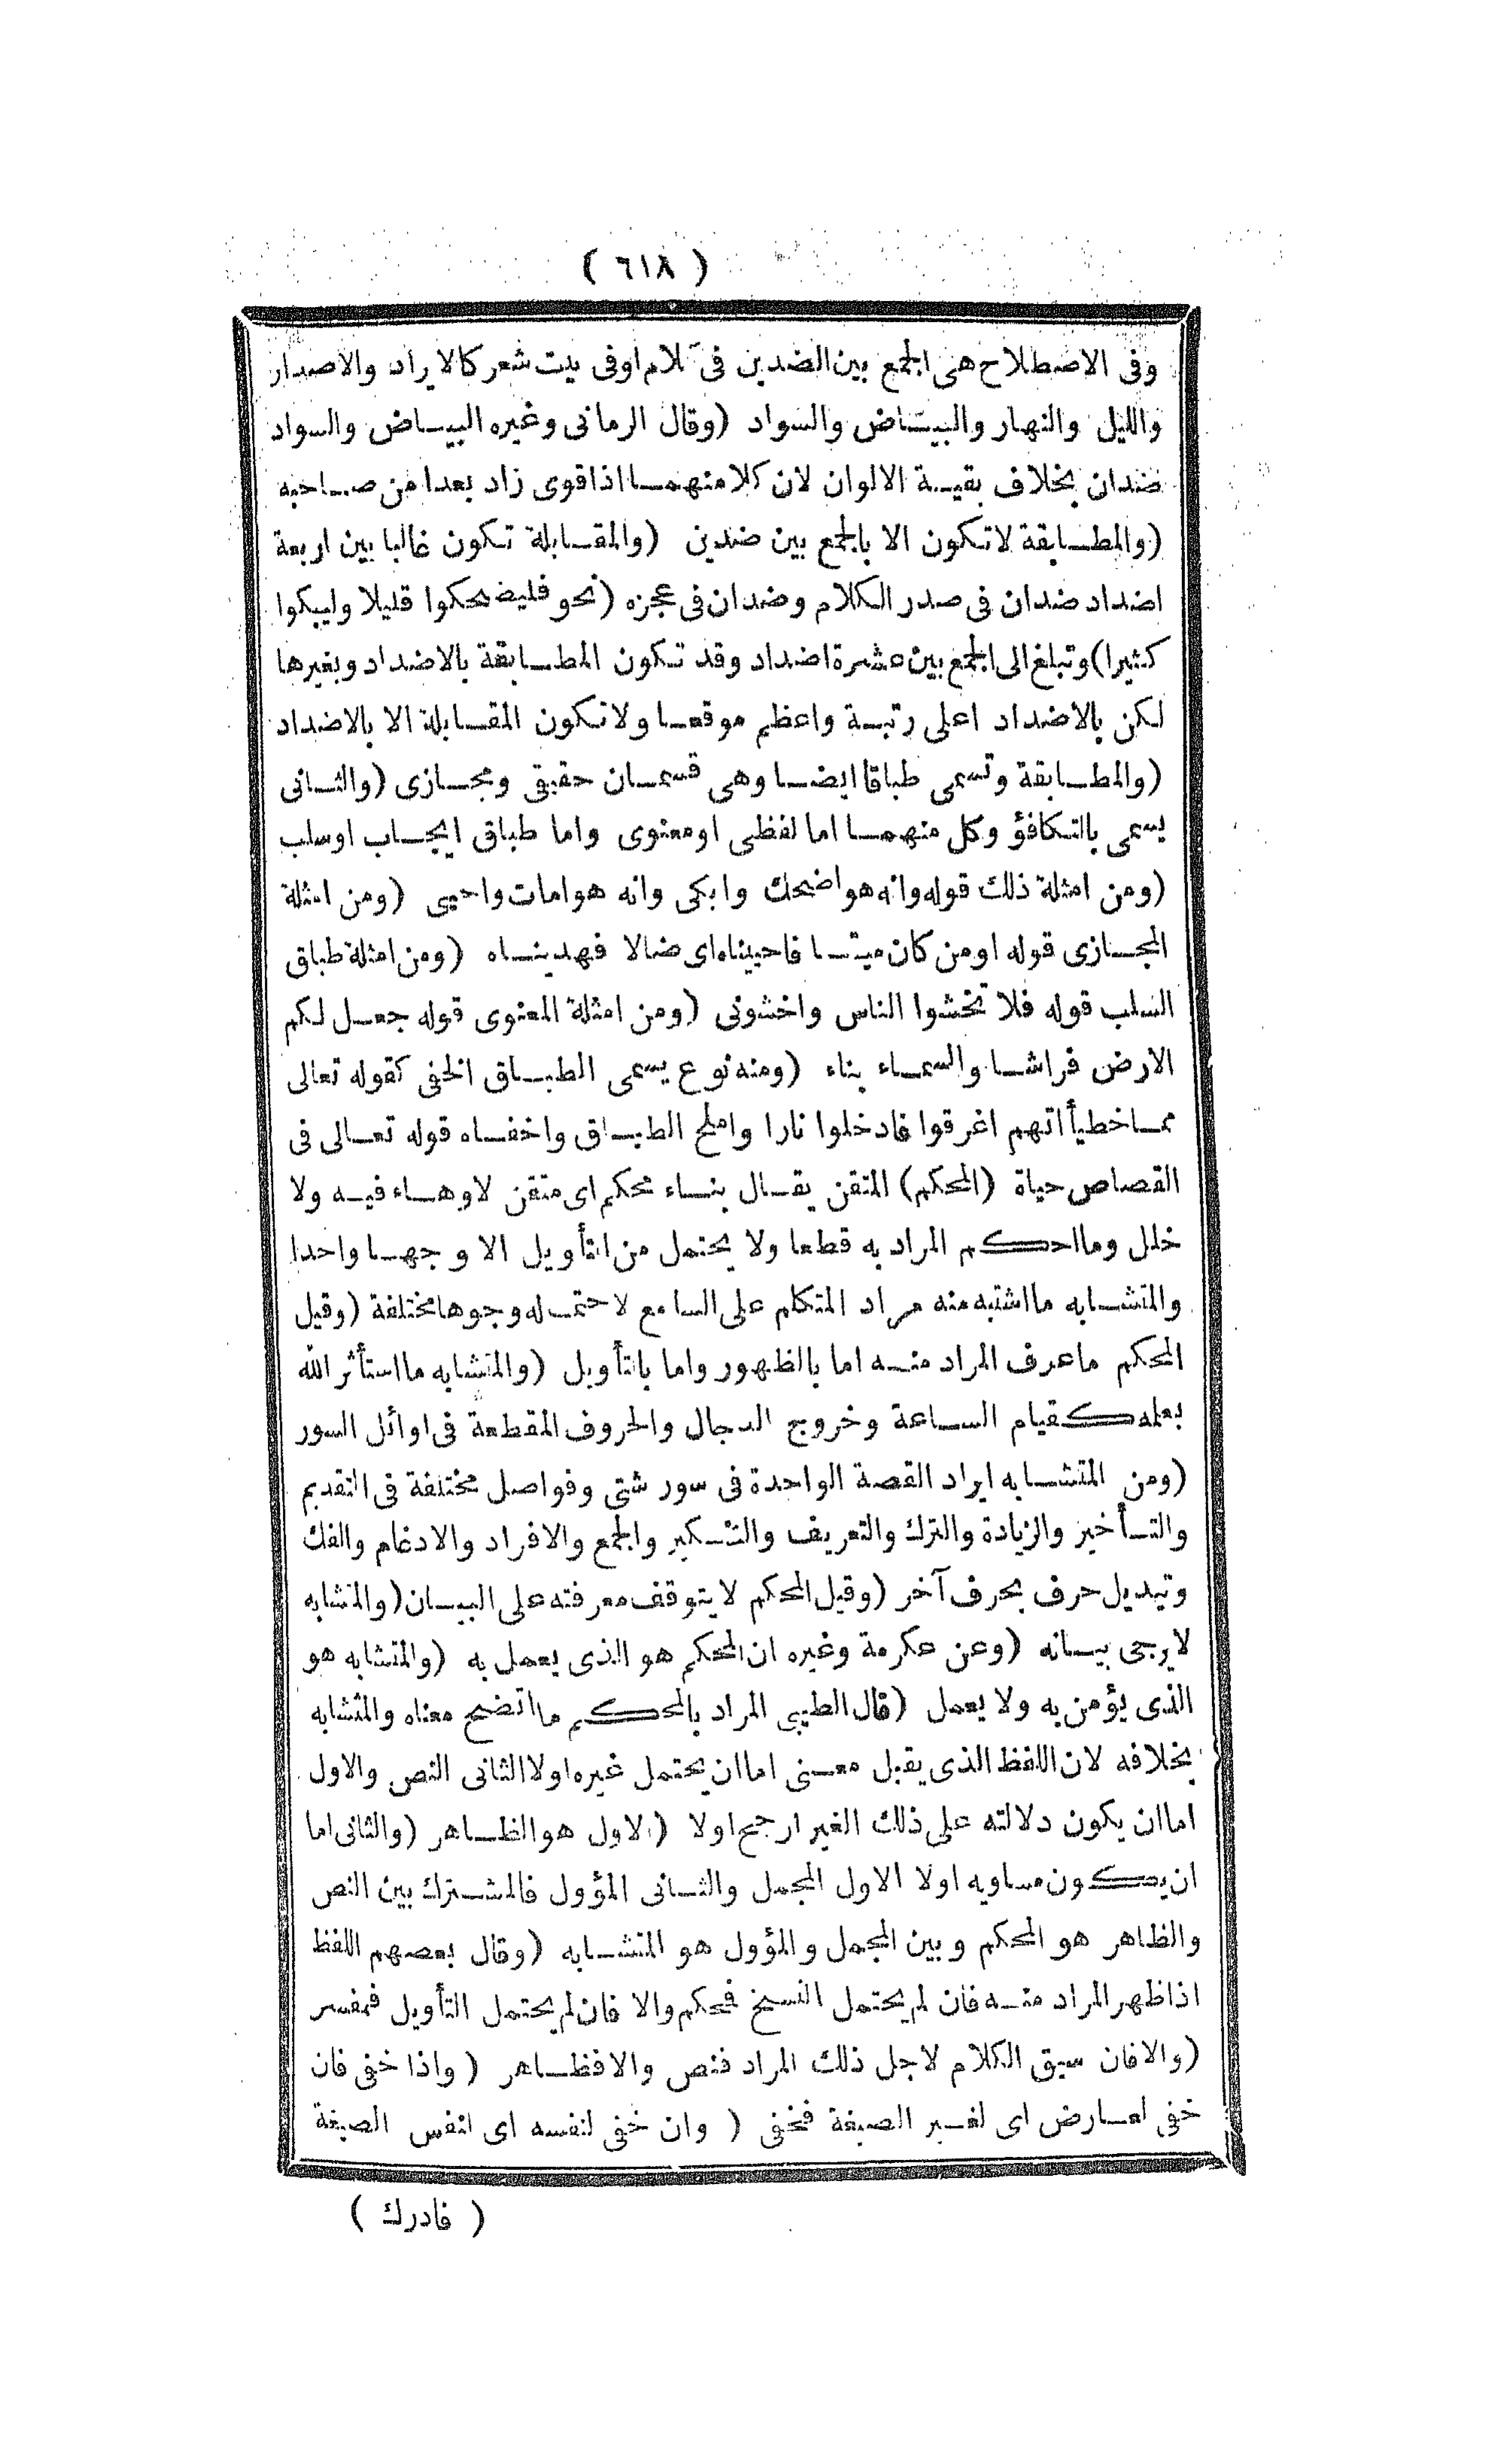 ( ٦١٨ )
وفى الاصطلاح هى الجمع بين الضدين فى كلام اوفى بيت شعر كالايراد والاصدار
والليل والنهار والبياض والسواد (وقال الرمانى وغيره البياض والسواد
ضدان بخلاف بقية الالوان لان كلا منهما اذا قوى زاد بعدا من صاحبه
(والمطابقة لاتكون الا بالجمع بين ضدين (والمقابلة تكون غالبا بين اربعة
اضداد ضدان فى صدر الكلام وضدان فى عجزه (نحو فليضحكوا قليلا وليبكوا
كثيرا) وتبلغ الى الجمع بين عشرة اضداد وقد تكون المطابقة بالاضداد وبغيرها
لكن بالاضداد اعلى رتبة واعظم موقعا ولاتكون المقابلة الا بالاضداد
(والمطابقة وتسمى طباقا ايضا وهى قسمان حقيقى ومجازى (والثانى
يسمى بالتكافؤ وكل منهما اما لفظى اومعنوى واما طباق ايجاب اوسلب
(ومن امثلة ذلك قوله وانه هو اضحك وابكى وانه هو امات واحيى (ومن امثلة
المجازى قوله اومن كان ميتا فاحييناه اى ضالا فهديناه (ومن امثلة طباق
السلب قوله فلا تخشوا الناس واخشونى (ومن امثلة المعنوى قوله جعل لكم
الارض فراشا والسماء بناء (ومنه نوع يسمى الطباق الخفى كقوله تعالى
مما خطيأاتهم اغرقوا فادخلوا نارا واملح الطباق واخفاه قوله تعالى فى
القصاص حياة (المحكم) المتقن يقال بناء محكم اى متقن لاوهاء فيه ولا
خلل ومااحكم المراد به قطعا ولا يحتمل من التأويل الا وجها واحدا
والمتشابه مااشتبه منه مراد المتكلم على السامع لاحتماله وجوها مختلفة (وقيل
المحكم ماعرف المراد منه اما بالظهور واما بالتأويل (والمتشابه مااستأثر الله
بعلمه كقيام الساعة وخروج الدجال والحروف المقطعة فى اوائل السور
(ومن المتشابه ايراد القصة الواحدة فى سور شتى وفواصل مختلفة فى التقديم
والتأخير والزيادة والترك والتعريف والتنكير والجمع والافراد والادغام والفك
وتبديل حرف بحرف آخر (وقيل المحكم لايتوقف معرفته على البيان (والمتشابه
لايرجى بيانه (وعن عكرمة وغيره ان المحكم هو الذى يعمل به (والمتشابه هو
الذى يؤمن به ولا يعمل (قال الطيبى المراد بالمحكم مااتضح معناه والمتشابه
بخلافه لان اللفظ الذى يقبل معنى اما ان يحتمل غيره اولا الثانى النص والاول
اما ان يكون دلالته على ذلك الغير ارجح اولا (الاول هو الظاهر (والثانى اما
ان يكون مساويه اولا الاول المجمل والثانى المؤول فالمشترك بين النص
والظاهر هو المحكم وبين المجمل والمؤول هو المتشابه (وقال بعضهم اللفظ
اذا ظهر المراد منه فان لم يحتمل النسخ فمحكم والا فان لم يحتمل التأويل فمفسر
(والا فان سيق الكلام لاجل ذلك المراد فنص والا فظاهر (واذا خفى فان
خفى لعارض اى لغير الصيغة فخفى ( وان خفى لنفسه اى لنفس الصيغة
( فادرك )